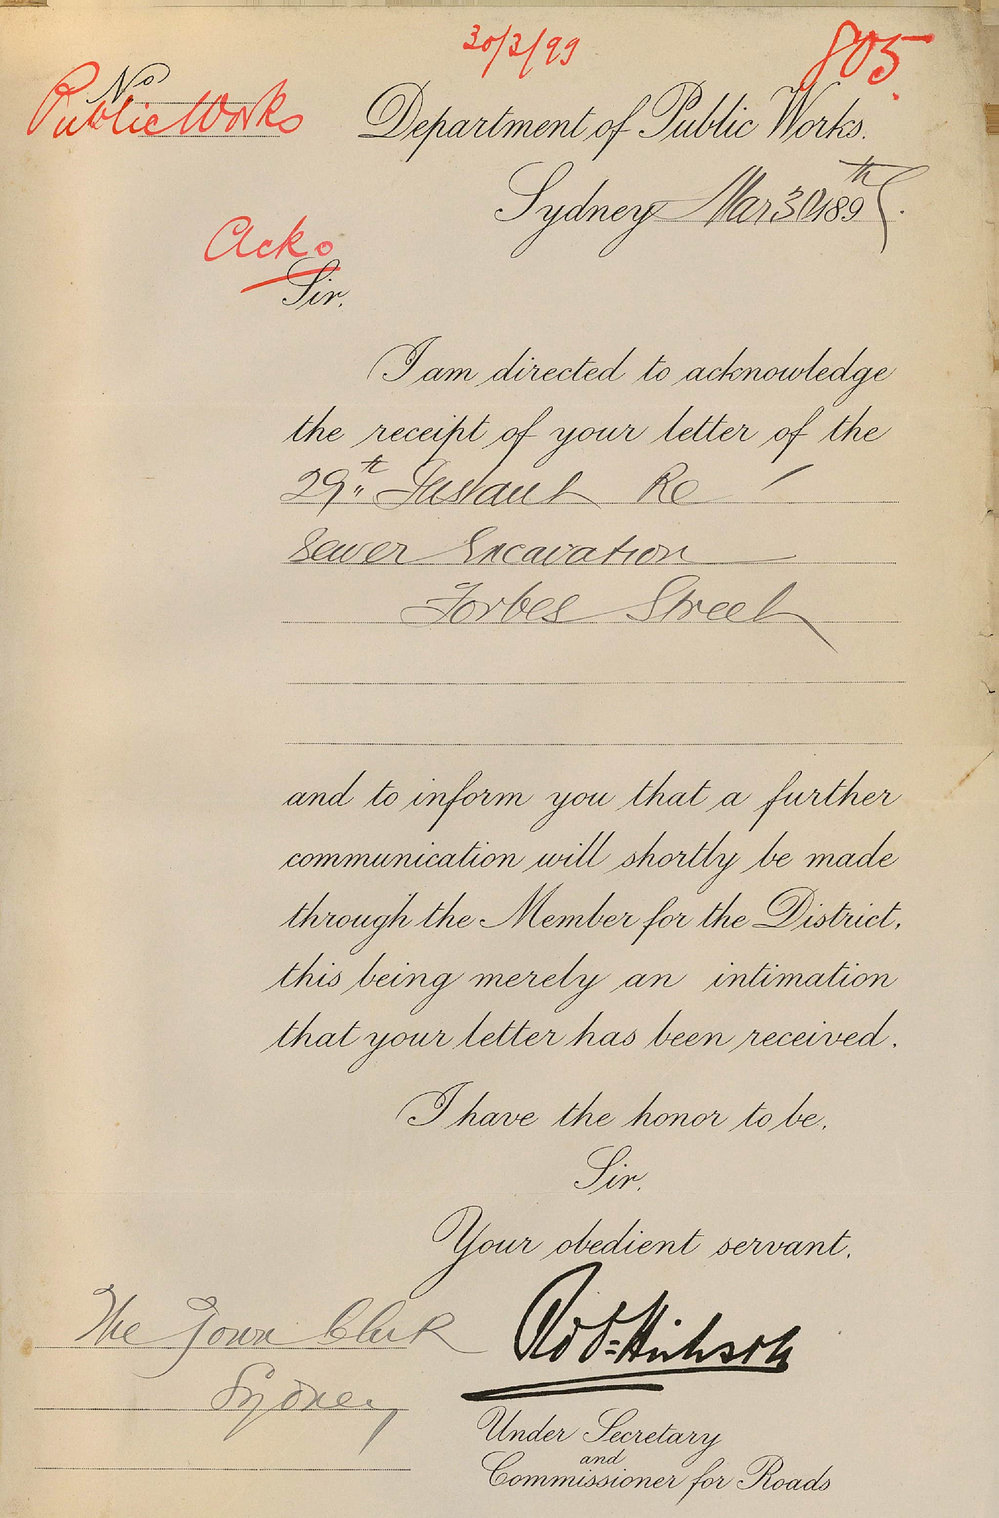 30/3/99
805
No
Public Works
Department of Public Works.
Sydney Mar 30th 1899.
Acko
Sir,
I am directed to acknowledge
the receipt of your letter of the
29th Instant Re
Sewer Excavation
Forbes Street
and to inform you that a further
communication will shortly be made
through the Member for the District,
this being merely an intimation
that your letter has been received.
I have the honor to be,
Sir,
Your obedient servant,
The Town Clerk
Sydney
Under Secretary
and
Commissioner for Roads